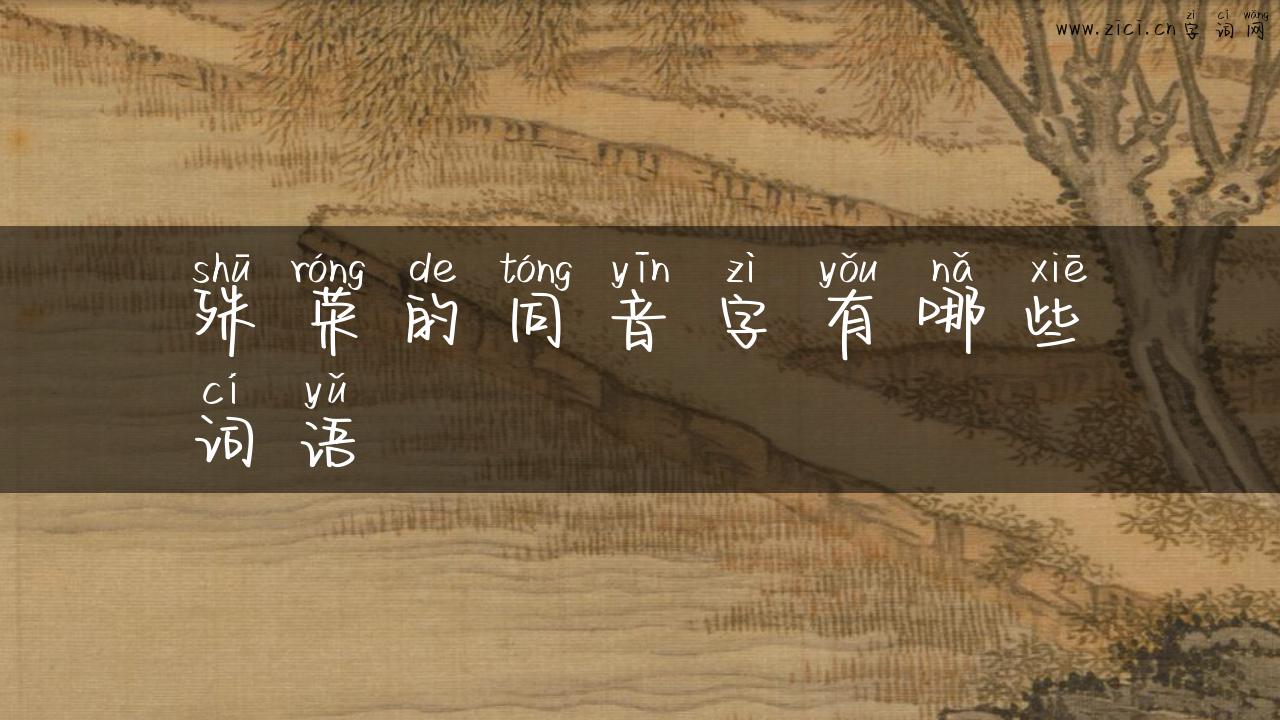 zì cí wǎng
www.zici.cn字词网
shū róng de tóng yīn zì yǒu nǎ xiē
殊荣的同音字有哪些
cí yǔ
词语